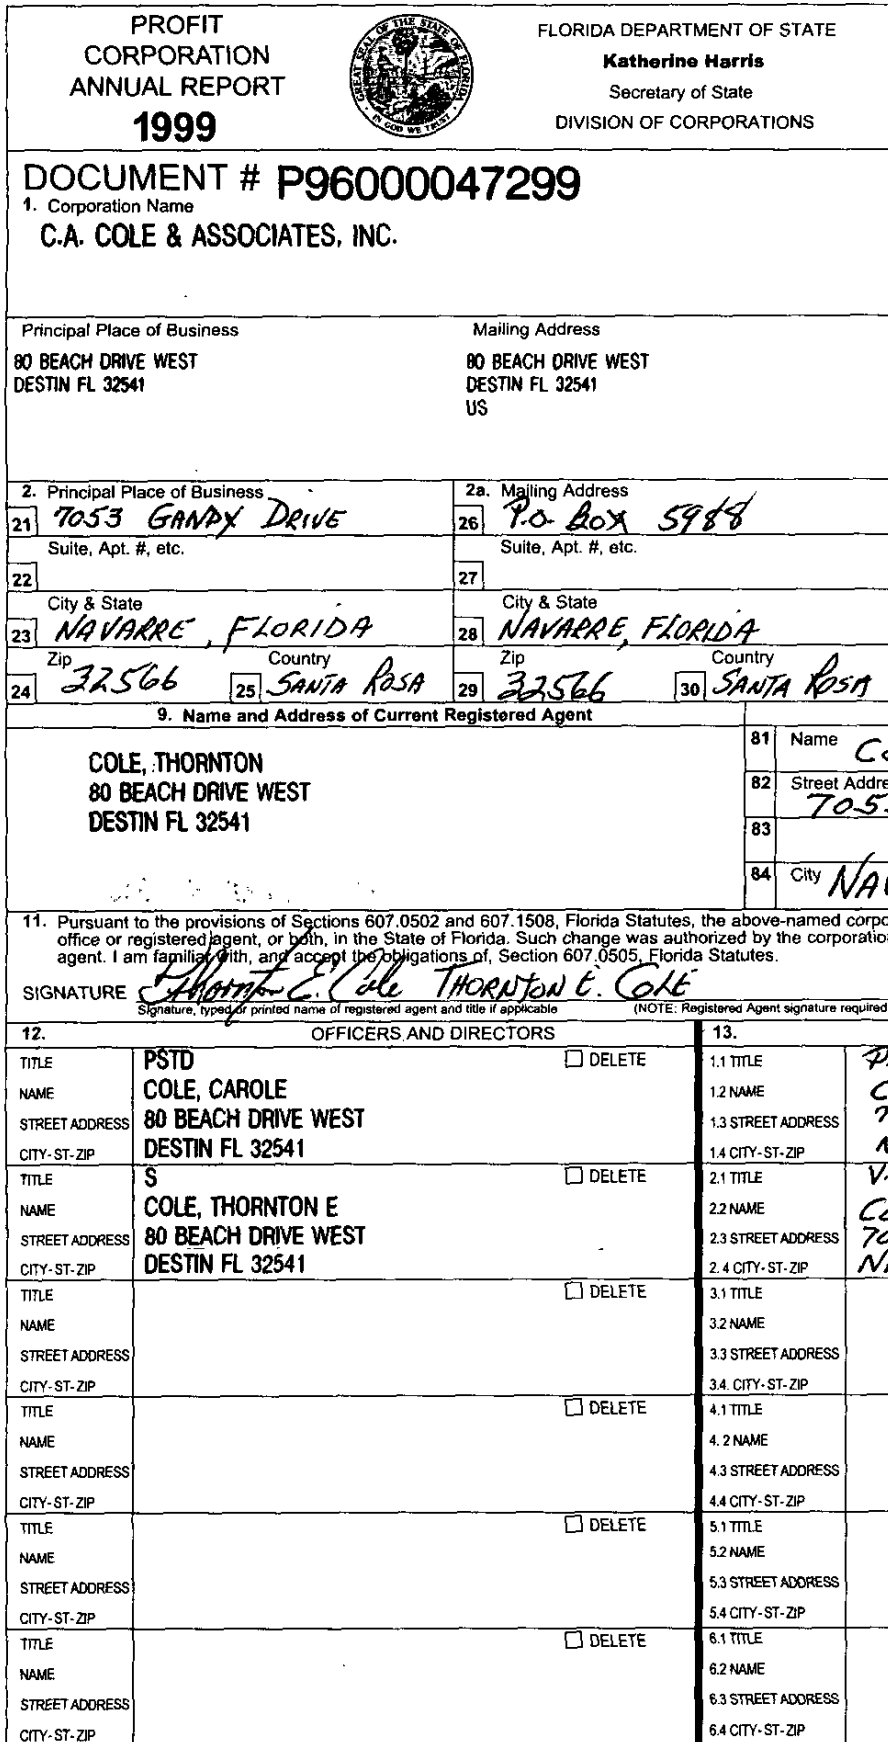 PROFIT
CORPORATION
ANNUAL REPORT
1999
GREAT SEAL OF THE STATE OF FLORIDA
IN GOD WE TRUST
FLORIDA DEPARTMENT OF STATE
Katherine Harris
Secretary of State
DIVISION OF CORPORATIONS
DOCUMENT # P96000047299
1. Corporation Name
C.A. COLE & ASSOCIATES, INC.
Principal Place of Business
80 BEACH DRIVE WEST
DESTIN FL 32541
Mailing Address
80 BEACH DRIVE WEST
DESTIN FL 32541
US
2. Principal Place of Business
21 7053 GANDY DRIVE
Suite, Apt. #, etc.
22
City & State
23 NAVARRE, FLORIDA
Zip Country
24 32566 25 SANTA ROSA
2a. Mailing Address
26 P.O. BOX 5988
Suite, Apt. #, etc.
27
City & State
28 NAVARRE, FLORIDA
Zip Country
29 32566 30 SANTA ROSA
9. Name and Address of Current Registered Agent
COLE, THORNTON
80 BEACH DRIVE WEST
DESTIN FL 32541
81 Name Co
82 Street Addre
705
83
84 City NA
11. Pursuant to the provisions of Sections 607.0502 and 607.1508, Florida Statutes, the above-named corpo
office or registered agent, or both, in the State of Florida. Such change was authorized by the corporatio
agent. I am familiar with, and accept the obligations of, Section 607.0505, Florida Statutes.
SIGNATURE Thornton E. Cole THORNTON E. COLE
Signature, typed or printed name of registered agent and title if applicable (NOTE: Registered Agent signature required
12. OFFICERS AND DIRECTORS
TITLE PSTD DELETE
NAME COLE, CAROLE
STREET ADDRESS 80 BEACH DRIVE WEST
CITY-ST-ZIP DESTIN FL 32541
TITLE S DELETE
NAME COLE, THORNTON E
STREET ADDRESS 80 BEACH DRIVE WEST
CITY-ST-ZIP DESTIN FL 32541
TITLE DELETE
NAME
STREET ADDRESS
CITY-ST-ZIP
TITLE DELETE
NAME
STREET ADDRESS
CITY-ST-ZIP
TITLE DELETE
NAME
STREET ADDRESS
CITY-ST-ZIP
TITLE DELETE
NAME
STREET ADDRESS
CITY-ST-ZIP
13.
1.1 TITLE P
1.2 NAME C
1.3 STREET ADDRESS 7
1.4 CITY-ST-ZIP N
2.1 TITLE V
2.2 NAME Co
2.3 STREET ADDRESS 70
2.4 CITY-ST-ZIP N
3.1 TITLE
3.2 NAME
3.3 STREET ADDRESS
3.4. CITY-ST-ZIP
4.1 TITLE
4.2 NAME
4.3 STREET ADDRESS
4.4 CITY-ST-ZIP
5.1 TITLE
5.2 NAME
5.3 STREET ADDRESS
5.4 CITY-ST-ZIP
6.1 TITLE
6.2 NAME
6.3 STREET ADDRESS
6.4 CITY-ST-ZIP